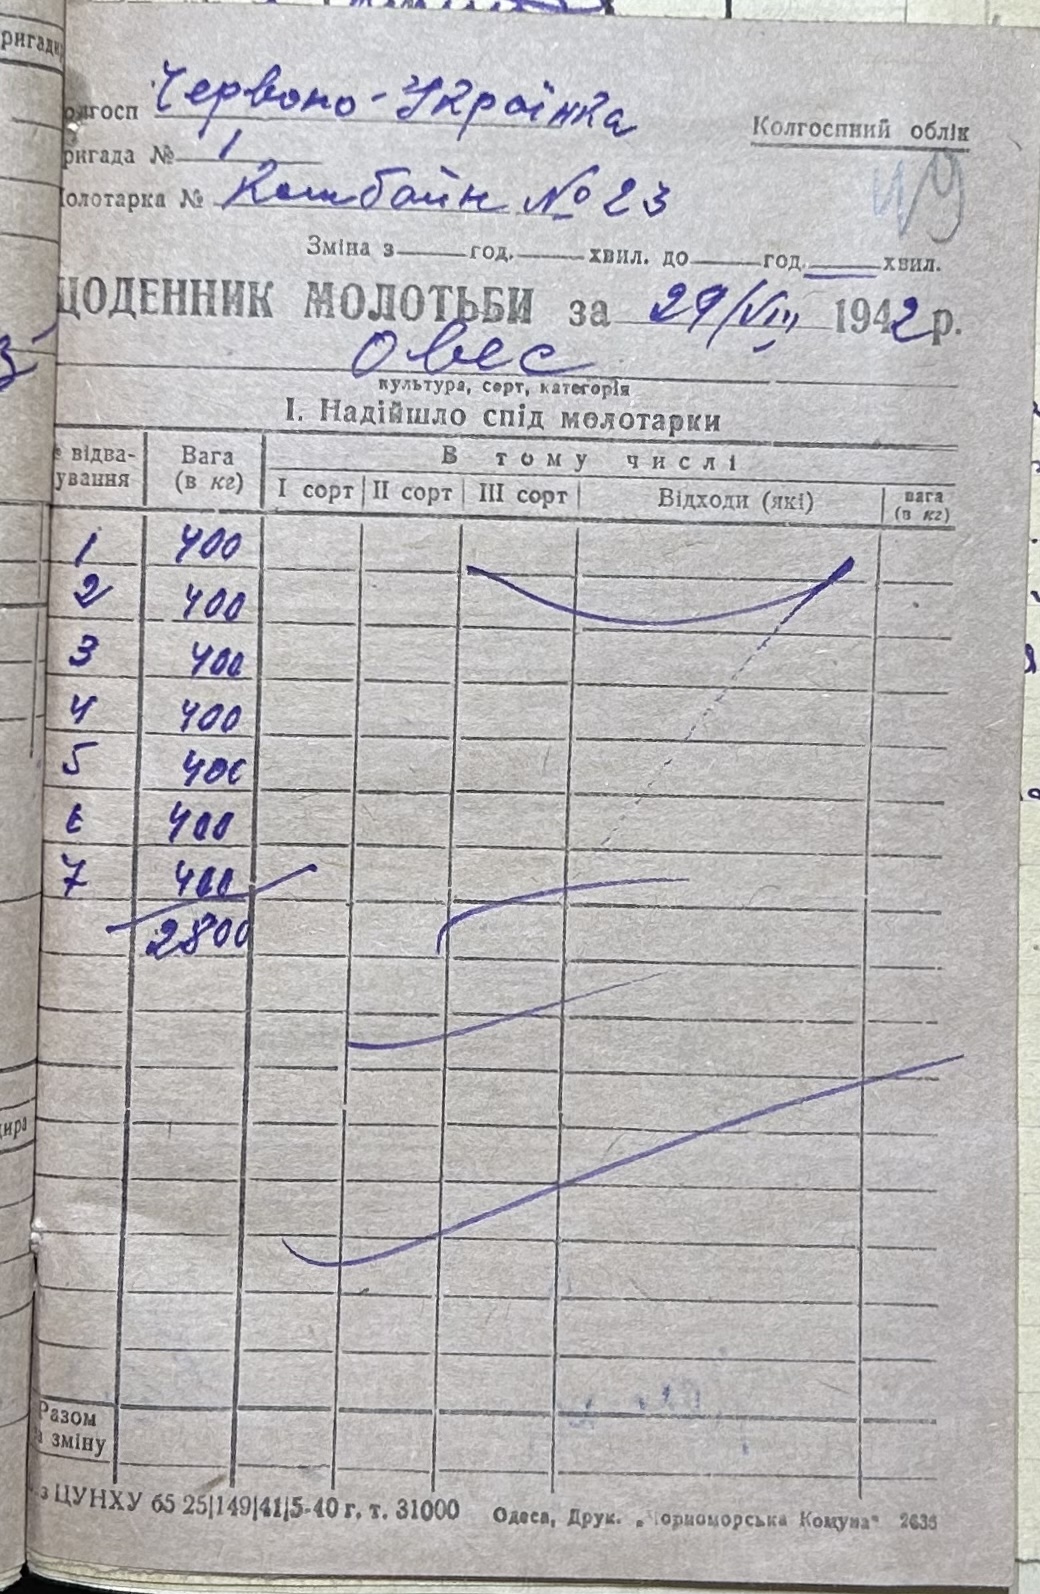 ригади
олгосп Червоно-Українка
Колгоспний облік
ригада № 1
49
олотарка № Комбайн № 23
Зміна з год. хвил. до год. хвил.
ЩОДЕННИК МОЛОТЬБИ за 29/VIII 1942 р.
Овес
культура, сорт, категорія
I. Надійшло спід молотарки
відва-ування Вага (в кг) В тому числі
I сорт II сорт III сорт Відходи (які) вага (в кг)
1 400
2 400
3 400
4 400
5 400
6 400
7 400
2800
Разом
зміну
з ЦУНХУ 65 25|149|41|5-40 г. т. 31000 Одеса, Друк. „Чорноморська Комуна" 2636